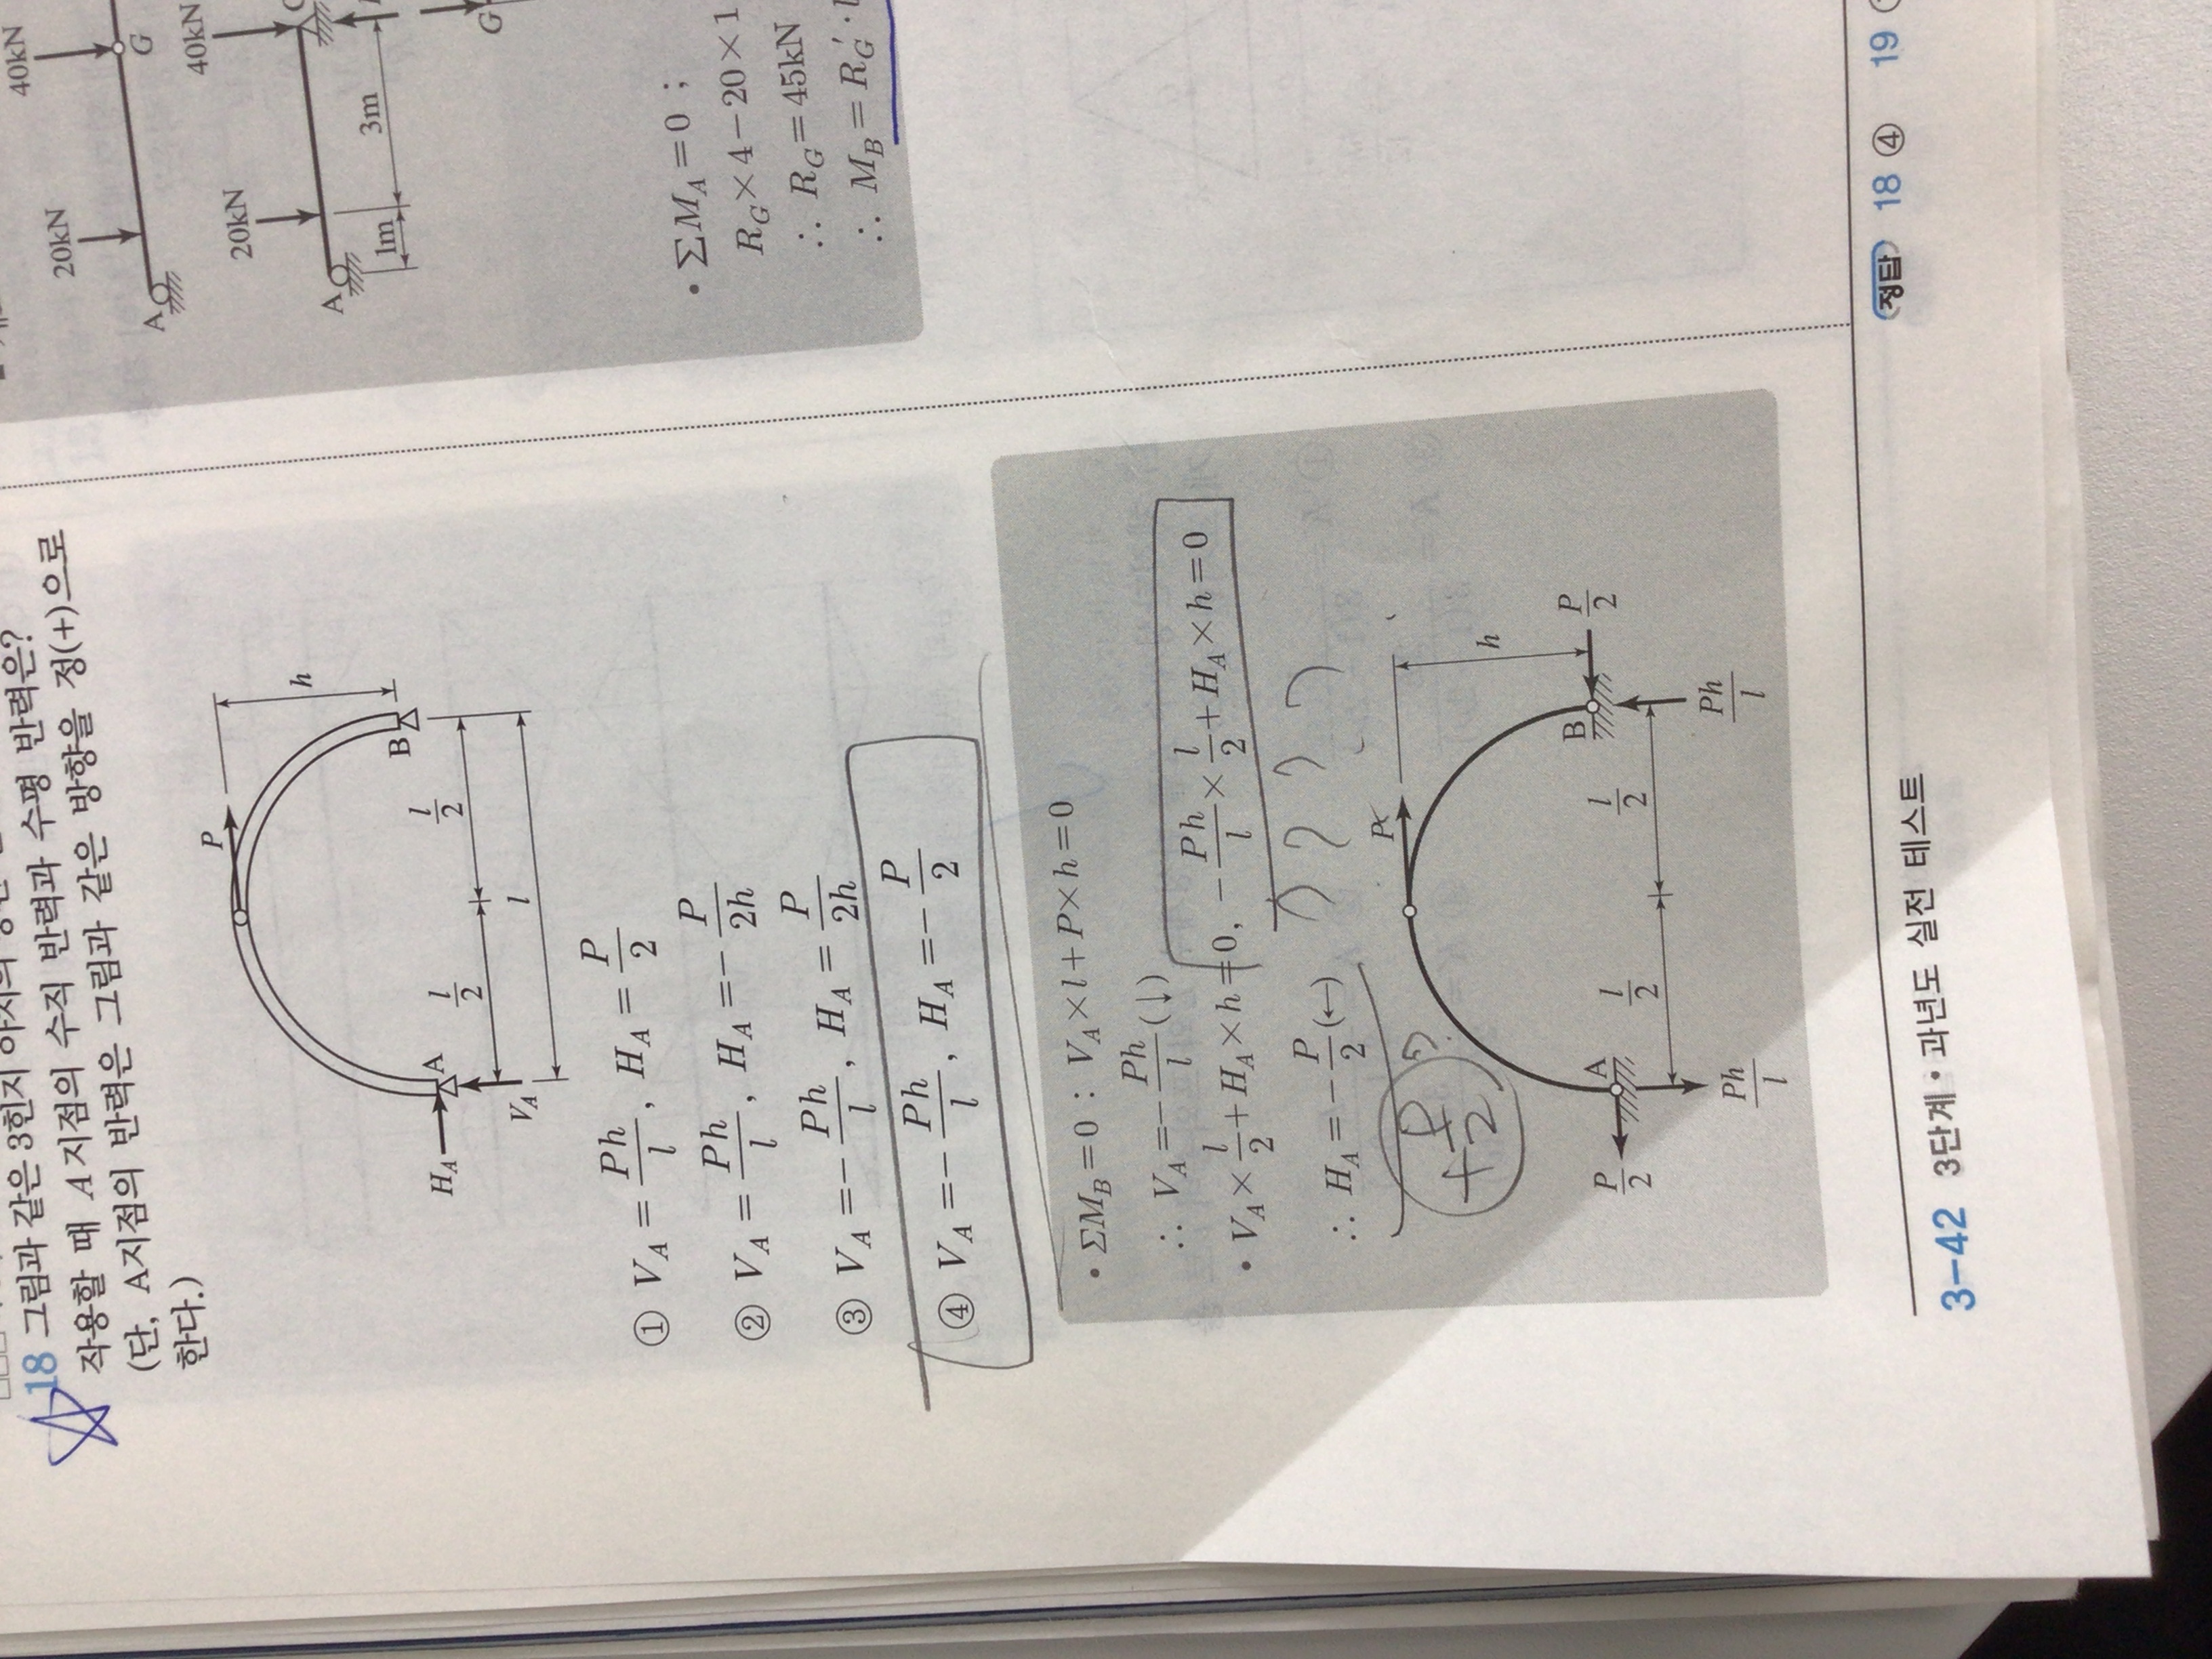 18 그림과 같은 3힌지 아치의
작용할 때 A지점의 수직 반력과 수평 반력은?
(단, A지점의 반력은 그림과 같은 방향을 정(+)으로
한다.)
P
h
A
B
H_A
V_A
l/2
l/2
l
① V_A = Ph/l, H_A = P/2
② V_A = Ph/l, H_A = -P/2h
③ V_A = -Ph/l, H_A = P/2h
④ V_A = -Ph/l, H_A = -P/2
• ΣM_B = 0 : V_A × l + P × h = 0
∴ V_A = -Ph/l (↓)
• V_A × l/2 + H_A × h = 0, -Ph/l × l/2 + H_A × h = 0
? ? ? ?
∴ H_A = -P/2 (←)
+P/2 ?
P
h
A
B
P/2
P/2
l/2
l/2
Ph/l
Ph/l
20kN
40kN
A
G
20kN
40kN
A
1m
3m
G
• ΣM_A = 0 ;
R_G × 4 - 20 × 1
∴ R_G = 45kN
∴ M_B = R_G′ ·
3-42 3단계 • 과년도 실전 테스트
정답 18 ④ 19